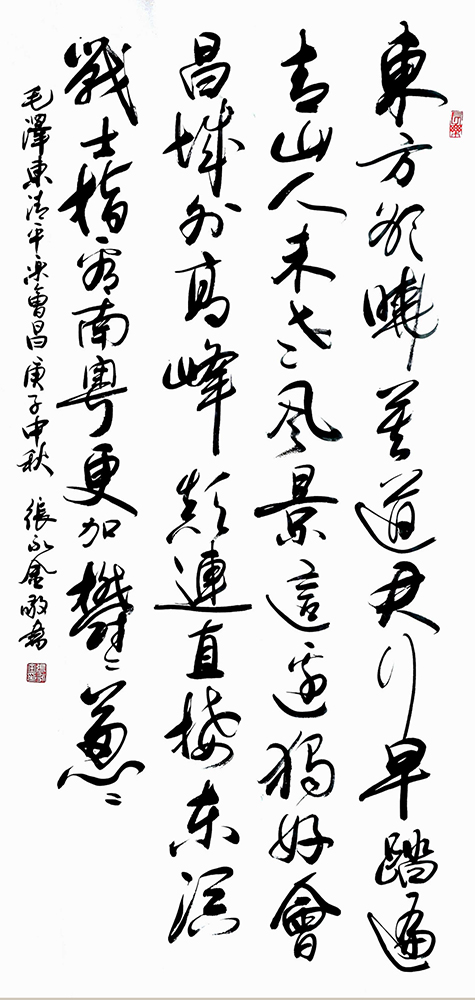 東方欲曉莫道君行早踏遍
青山人未老風景這邊獨好會
昌城外高峰顛連直接東溟
戰士指看南粵更加鬱〻蔥〻
毛澤東清平樂會昌庚子中秋 張永金敬書